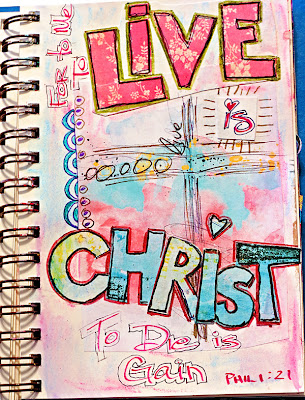 For to Me
To
LiVE
Live
is
CHRiST
To Die is
Gain
PHIL 1:21